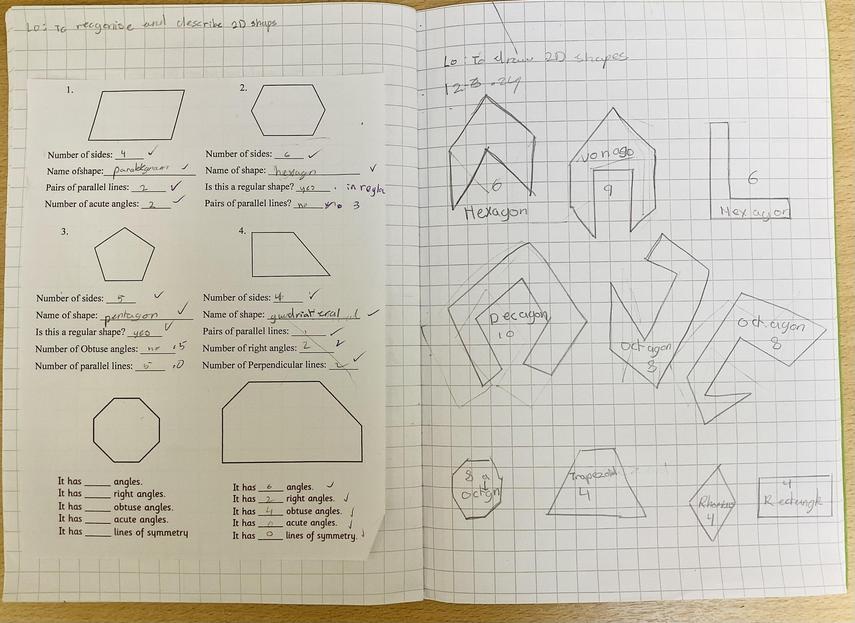 Lo: To recognise and describe 2D shaps
1.
2.
Number of sides: 4
Name of shape: paralelegram
Pairs of parallel lines: 2
Number of acute angles: 2
Number of sides: 6
Name of shape: hexagon
Is this a regular shape? yes
Pairs of parallel lines? no 3
3.
4.
Number of sides: 5
Name of shape: pentagon
Is this a regular shape? yes
Number of Obtuse angles: 5
Number of parallel lines: 5 0
Number of sides: 4
Name of shape:
Pairs of parallel lines:
Number of right angles: 2
Number of Perpendicular lines: 2
It has ____ angles.
It has ____ right angles.
It has ____ obtuse angles.
It has ____ acute angles.
It has ____ lines of symmetry
It has 6 angles.
It has 2 right angles.
It has 4 obtuse angles.
It has 0 acute angles.
It has 0 lines of symmetry.
Lo: To draw 2D shapes
6
Hexagon
vonago
9
6
Hexagon
Decagon
10
octagon
8
octagon
8
8
octgn
Trapezoid
4
4
4
Rectungle